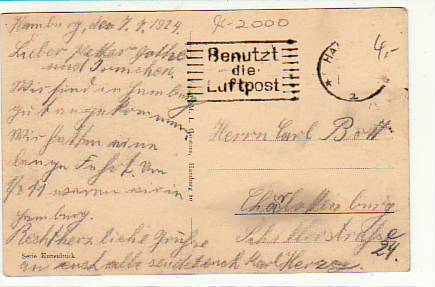 Hamburg, den 7.4.1924.
Lieber Vetter Gothe
und Tinnchen.
Wir sind in Hamburg
gut angekommen.
Wir hatten eine
lange Fahrt. Um
1/2 11 waren wir in
Hamburg.
Recht herzliche Grüsse
an euch alle sendet euch Karl Herzog.
Serie Kunstdruck
Hamburg
K-2000
4,-
Benutzt
die
Luftpost
HA
2
Herrn Carl Bott
Charlottenburg
Schillerstraße
24.